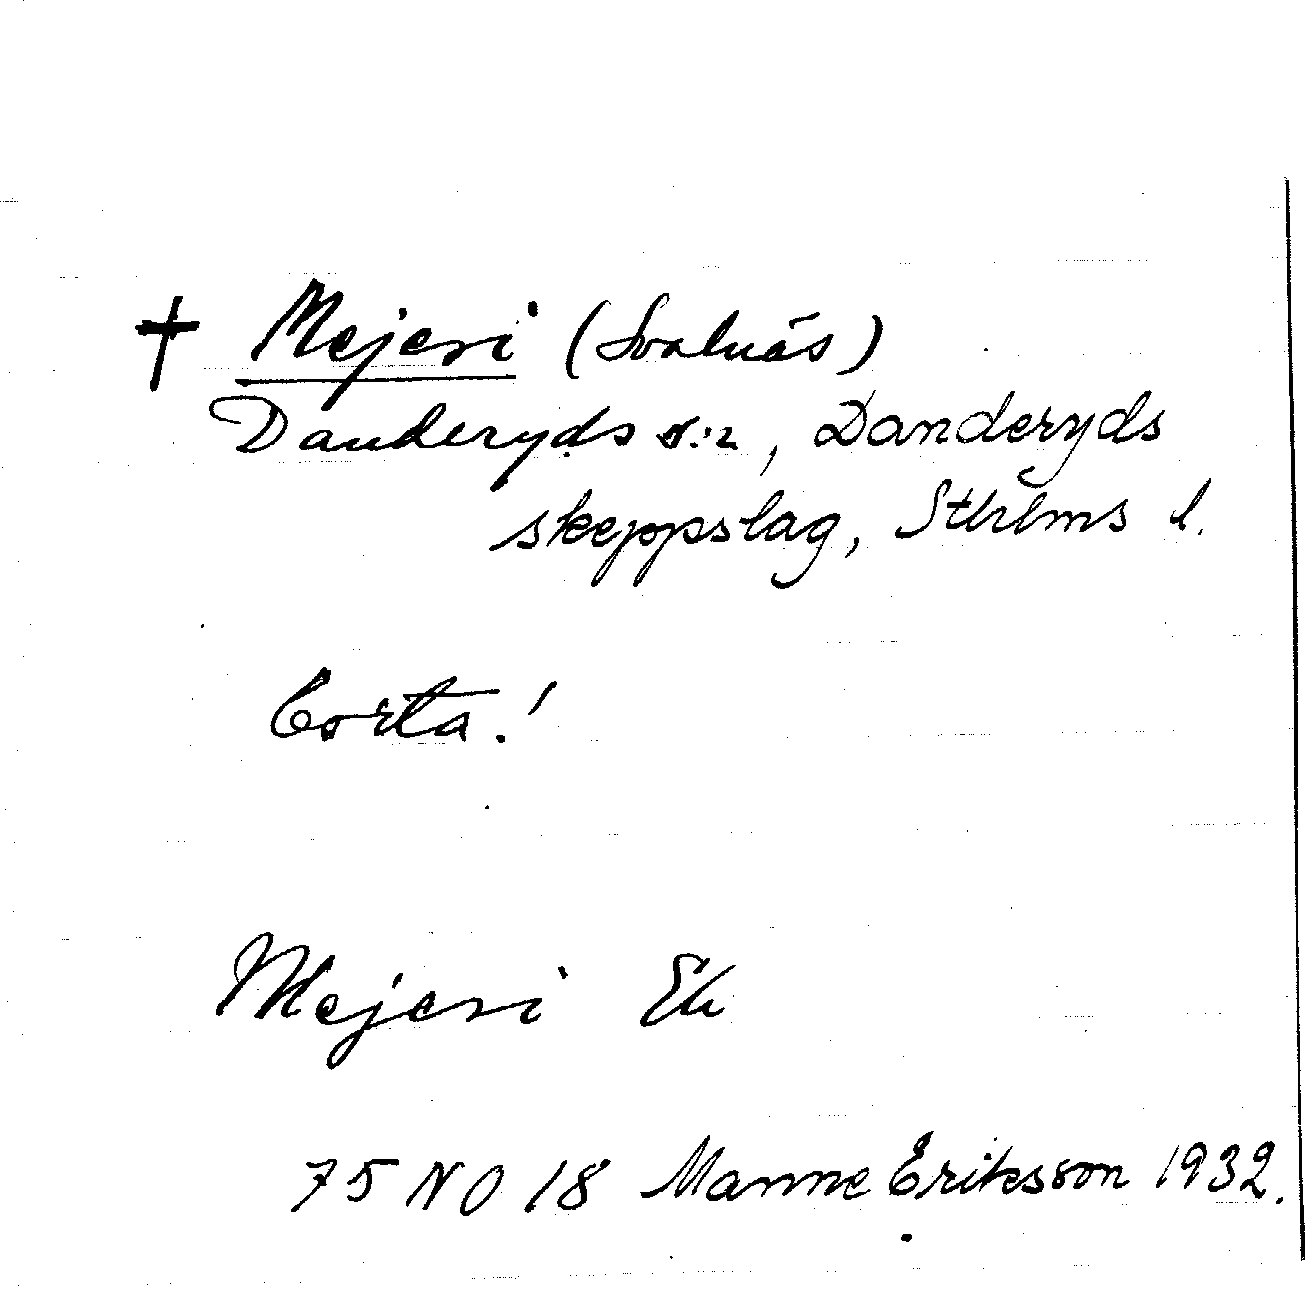 † Mejeri (Svalnäs)
Danderyds s:n, Danderyds
skeppslag, Sthlms l.
Borta!
Mejeri Ek
75 NO 18 Manne Eriksson 1932.